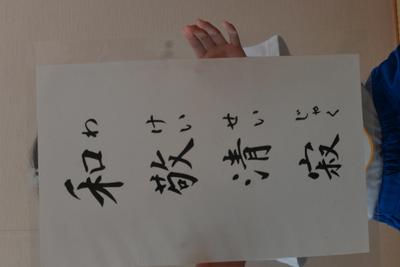 和敬清寂
わ けい せい じゃく